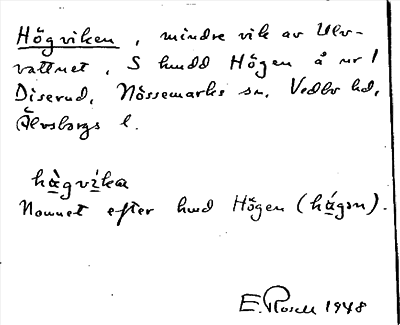 Högviken, mindre vik av Ulv-
vattnet, S hudd Högen å nr 1
Diserud, Nössemarks sn, Vedbo hd,
Älvsborgs l.
hàgvíka
Namnet efter hudd Högen (hágən).
E. Rosell 1948